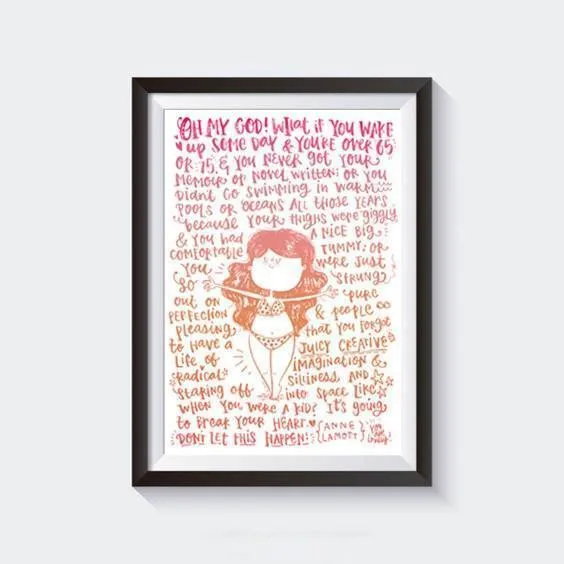 OH MY GOD! WHAT IF YOU WAKE
UP SOME DAY & YOU'RE OVER 65
OR 75, & YOU NEVER GOT YOUR
MEMOIR OR NOVEL WRITTEN; OR YOU
DIDN'T GO SWIMMING IN WARM
POOLS OR OCEANS ALL THOSE YEARS
because YOUR THIGHS WERE GIGGLY
& YOU HAD A NICE BIG
COMFORTABLE TUMMY; OR
YOU WERE JUST
SO STRUNG
OUT ON PURE
PERFECTION & PEOPLE
PLEASING, THAT YOU FORGOT
TO HAVE A JUICY CREATIVE
LIFE OF IMAGINATION &
RADICAL SILLINESS, AND
STARING OFF INTO SPACE LIKE
WHEN YOU WERE A KID? IT'S GOING
TO BREAK YOUR HEART.
DON'T LET THIS HAPPEN! {ANNE LAMOTT}